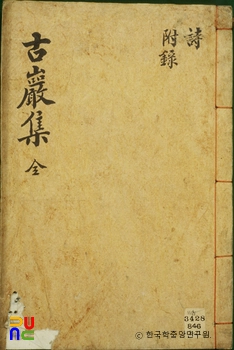 詩
附錄
古巖集 全
3428
646
한국학중앙연구원